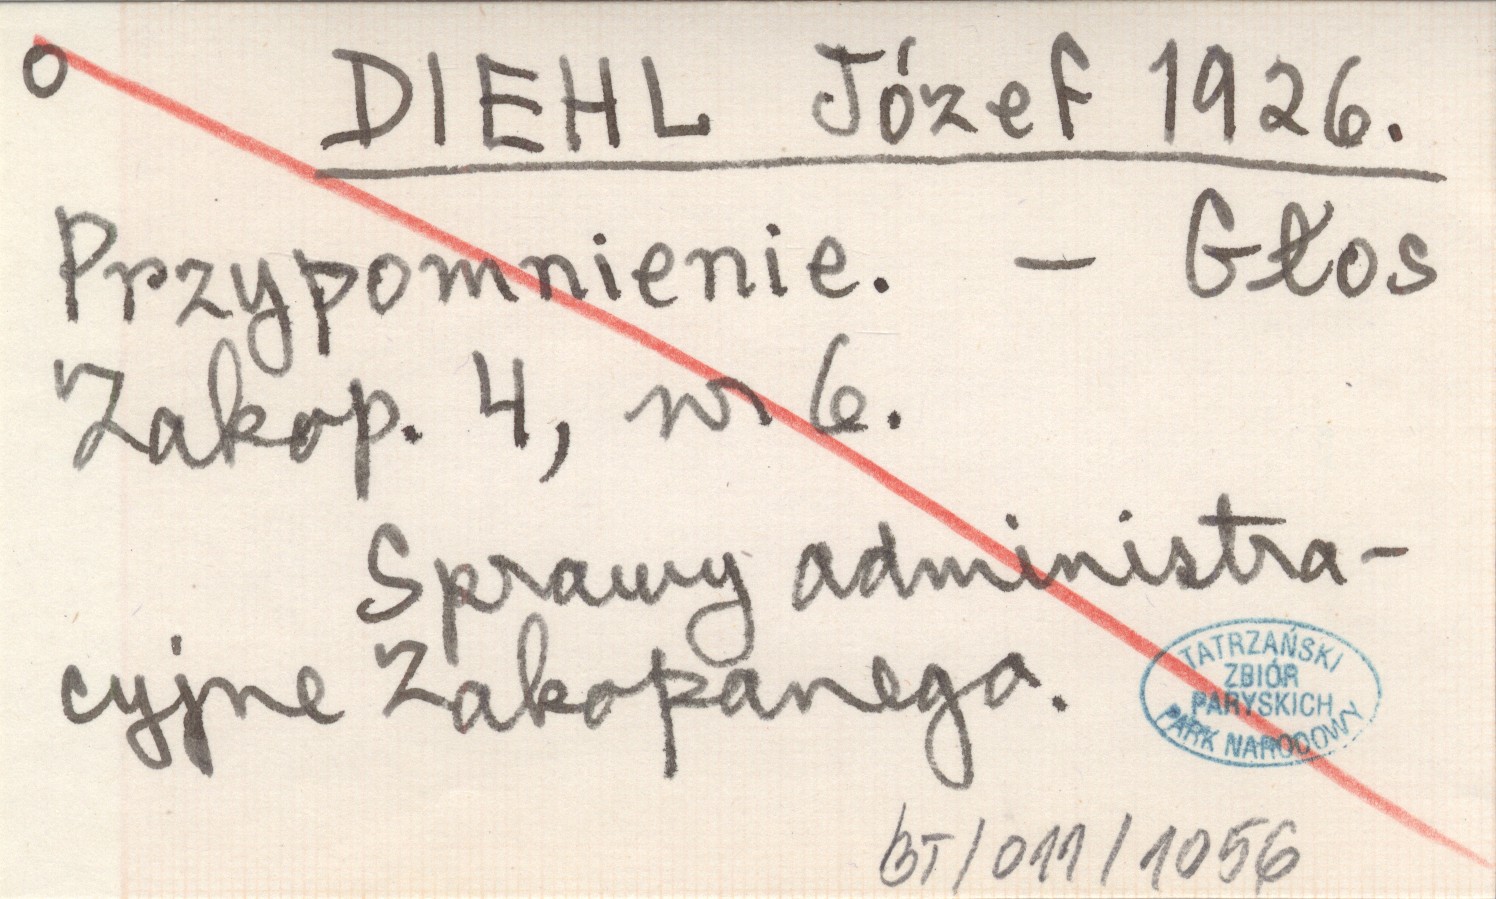 o DIEHL Józef 1926.
Przypomnienie. – Głos
Zakop. 4, nr 6.
Sprawy administra-
cyjne Zakopanego.
TATRZAŃSKI
ZBIÓR
PARYSKICH
PARK NARODOWY
BT/011/1056